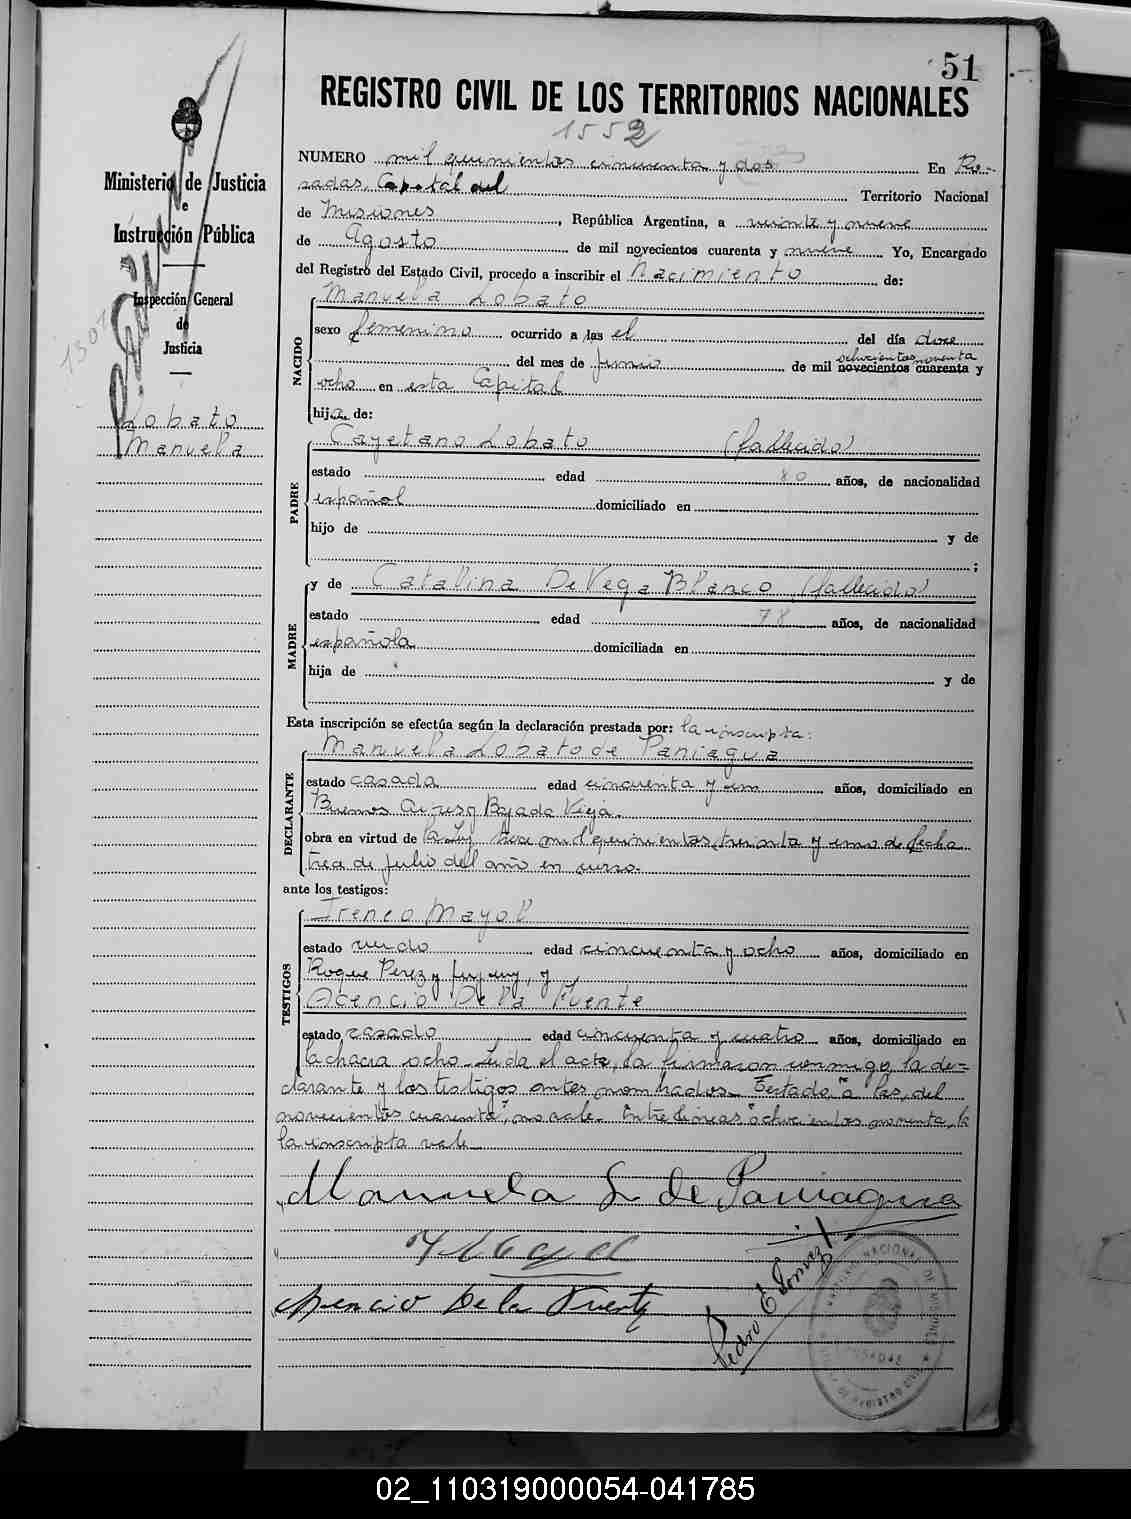 51
REGISTRO CIVIL DE LOS TERRITORIOS NACIONALES
1552
NUMERO mil quinientos cincuenta y dos En Po-
sadas, Capital del Territorio Nacional
de Misiones, República Argentina, a veinte y nueve
de Agosto de mil novecientos cuarenta y nueve. Yo, Encargado
del Registro del Estado Civil, procedo a inscribir el Nacimiento de:
Ministerio de Justicia
e
Instrucción Pública
Inspección General
de
Justicia
Lobato
Manuela
NACIDO
Manuela Lobato
sexo femenino ocurrido a las el del día doce
ochocientos noventa
del mes de Junio de mil novecientos cuarenta y
ocho en esta Capital
hija de:
PADRE
Cayetano Lobato (fallecido)
estado edad 80 años, de nacionalidad
español domiciliado en
hijo de y de
;
MADRE
y de Catalina De Vega Blanco (fallecida)
estado edad 78 años, de nacionalidad
española domiciliada en
hija de y de
Esta inscripción se efectúa según la declaración prestada por: la inscripta:
DECLARANTE
Manuela Lobato de Paniagua
estado casada edad cincuenta y un años, domiciliado en
Buenos Aires y Bajada Vieja.
obra en virtud de la Ley trece mil quinientos treinta y uno de fecha
tres de Julio del año en curso.
ante los testigos:
TESTIGOS
Ireneo Mayol
estado viudo edad cincuenta y ocho años, domiciliado en
Roque Perez y Jujuy, y
Acencio De la Fuente
estado casado edad cincuenta y cuatro años, domiciliado en
la chacra ocho. Leída el acta, la firmaron conmigo, la de=
clarante y los testigos antes nombrados. Testado "a las, del
novecientos cuarenta", no vale. Entrelíneas "ochocientos noventa, la
la inscripta vale.
Manuela L de Paniagua
Acencio De la Fuente
Pedro E Gomez
02_110319000054-041785